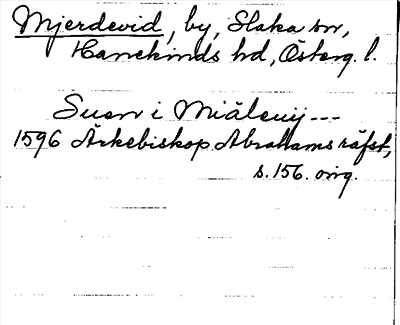 Mjerdevid, by, Slaka sn,
Hanekinds hd, Österg. l.
Suen i Miäleuij---
1596 Ärkebiskop Abrahams räfst,
s. 156. orig.